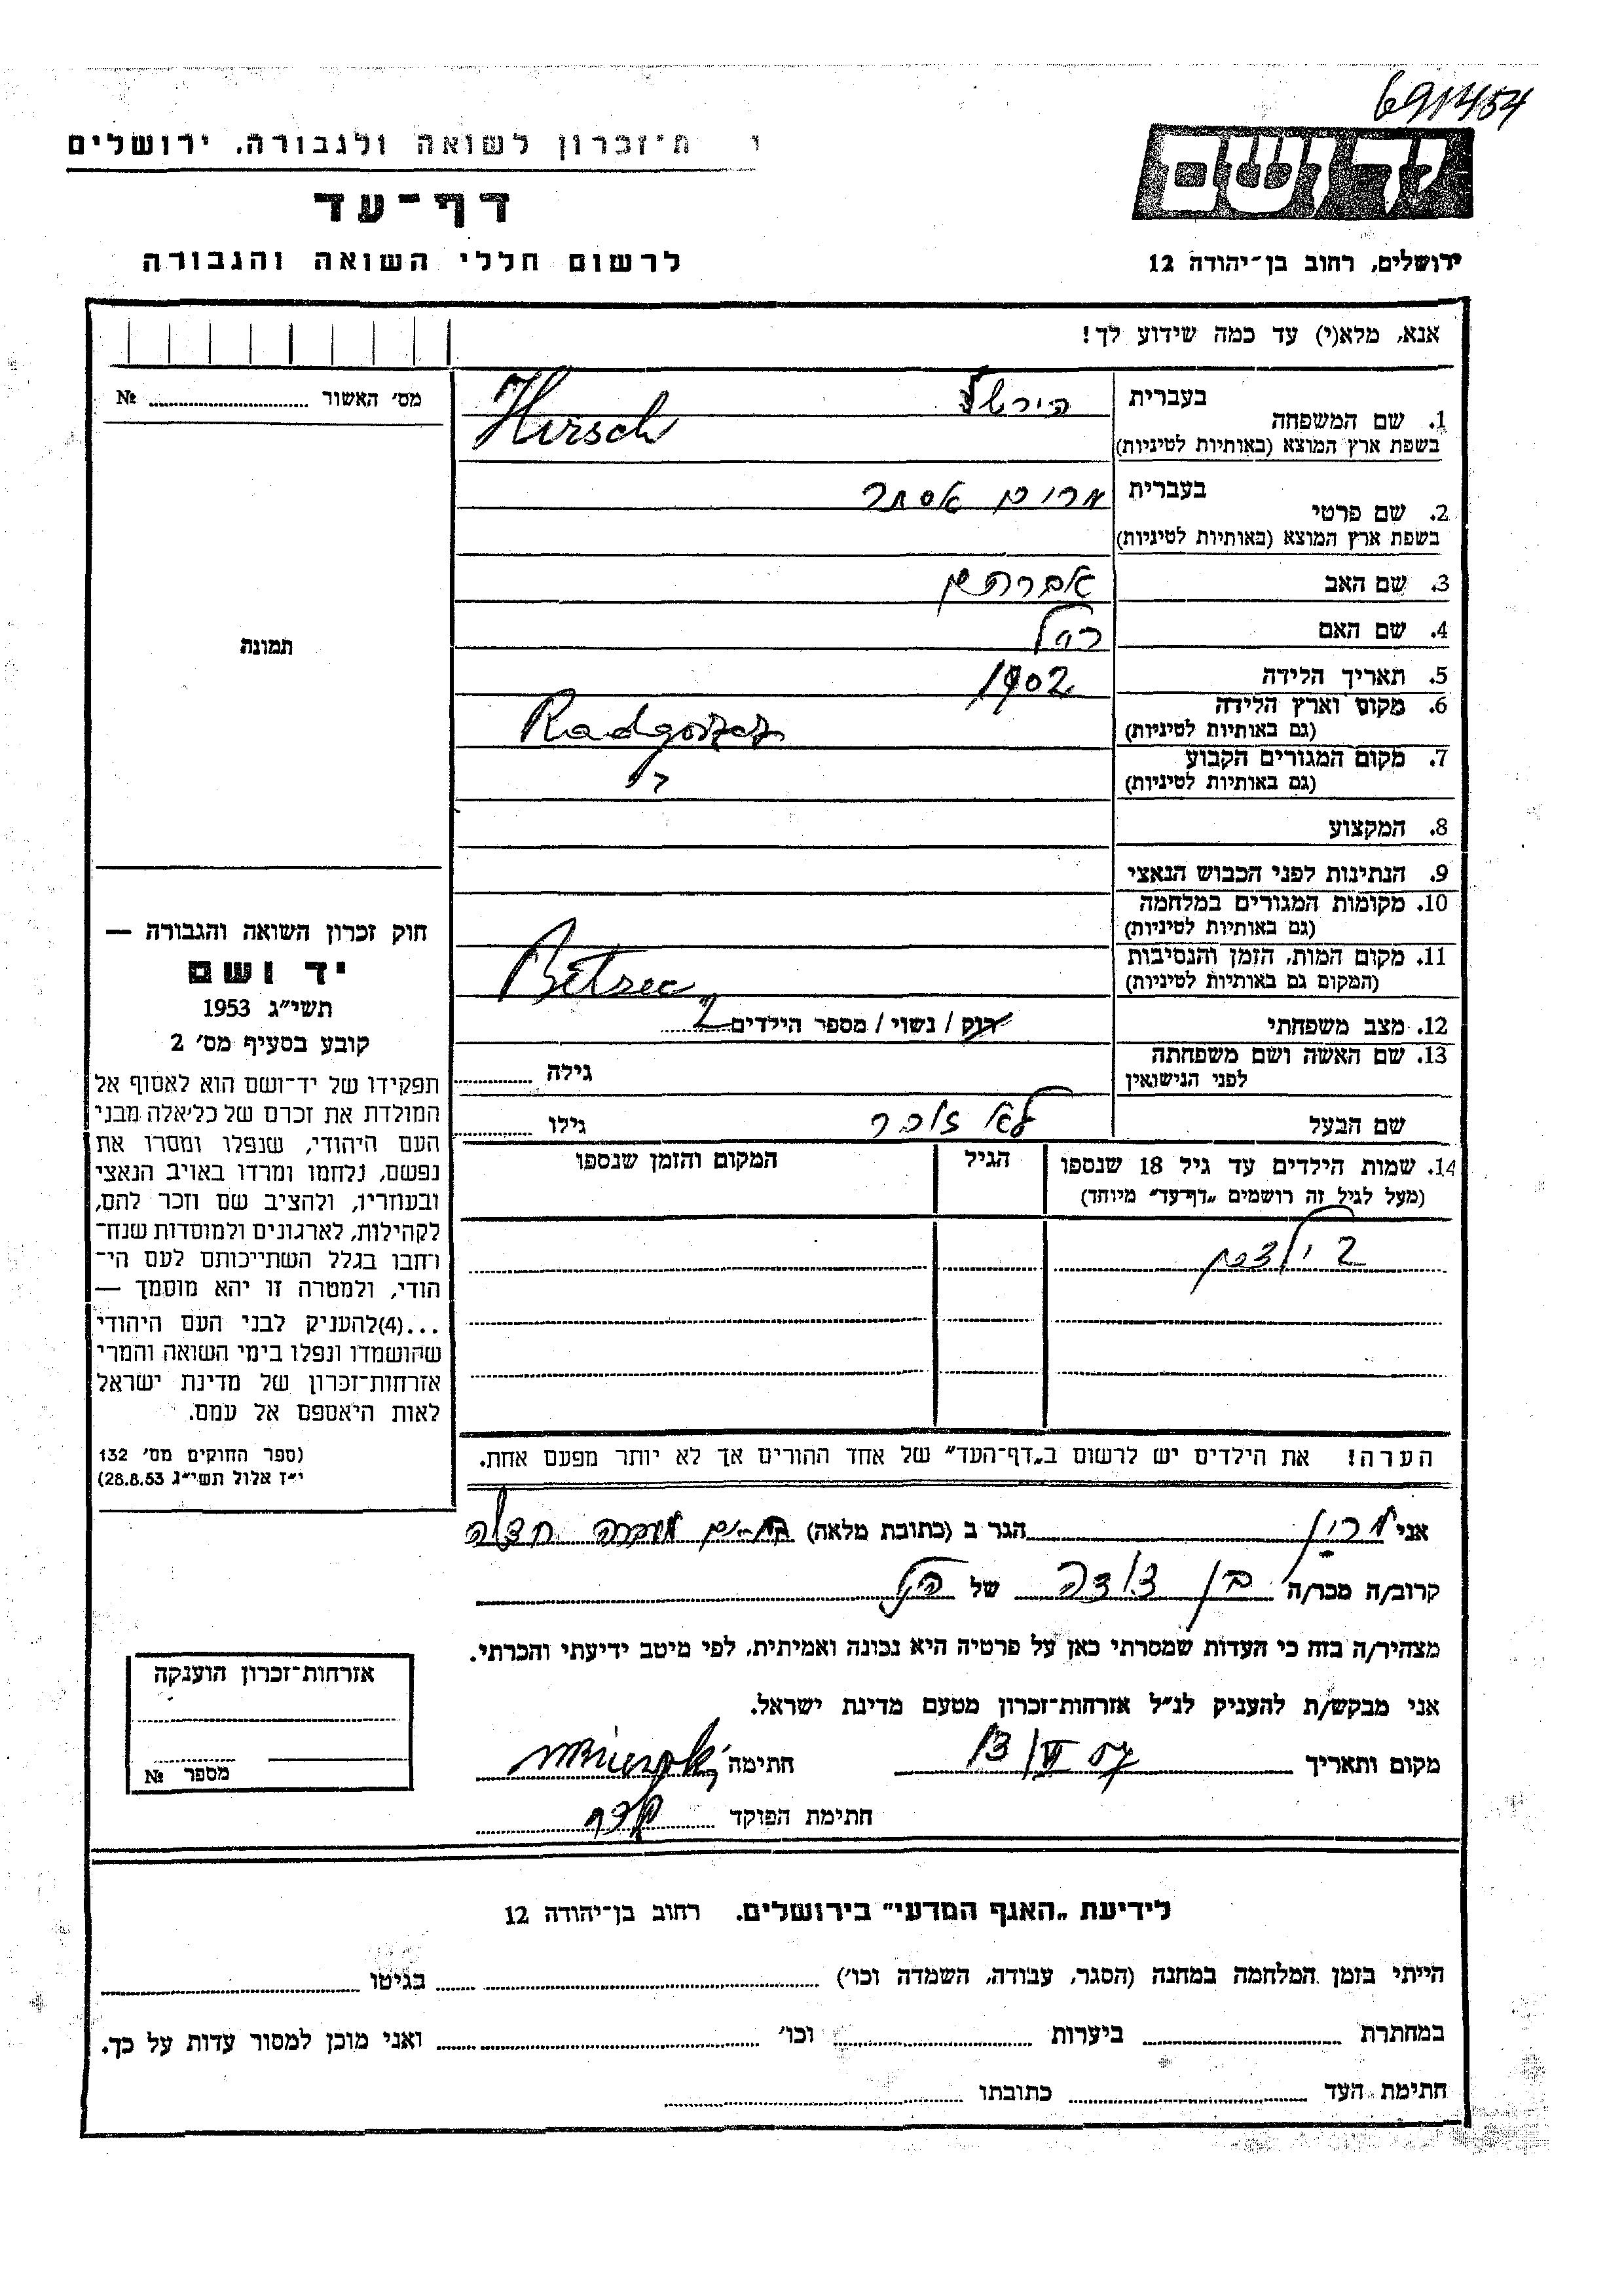 691454
ת־זכרון לשואה ולגבורה. ירושלים
יד ושם
דף־עד
לרשום חללי השואה והגבורה
ירושלים, רחוב בן־יהודה 12
אנא, מלא(י) עד כמה שידוע לך!
מס׳ האשור №
תמונה
1. שם המשפחה בעברית הירש
בשפת ארץ המוצא (באותיות לטיניות) Hirsch
2. שם פרטי בעברית מרים אסתר
בשפת ארץ המוצא (באותיות לטיניות)
3. שם האב אברהם
4. שם האם רחל
5. תאריך הלידה 1902
6. מקום וארץ הלידה (גם באותיות לטיניות) Radgoszcz
7. מקום המגורים הקבוע (גם באותיות לטיניות)
8. המקצוע
9. הנתינות לפני הכבוש הנאצי
10. מקומות המגורים במלחמה (גם באותיות לטיניות)
11. מקום המות, הזמן והנסיבות (המקום גם באותיות לטיניות) Bełzec
12. מצב משפחתי רוק / נשוי / מספר הילדים 2
13. שם האשה ושם משפחתה לפני הנישואין גילה
שם הבעל לא זוכר גילו
14. שמות הילדים עד גיל 18 שנספו הגיל המקום והזמן שנספו
(מעל לגיל זה רושמים „דף־עד״ מיוחד)
2 ילדים
הערה! את הילדים יש לרשום ב„דף־העד״ של אחד ההורים אך לא יותר מפעם אחת.
חוק זכרון השואה והגבורה —
יד ושם
תשי״ג 1953
קובע בסעיף מס׳ 2
תפקידו של יד־ושם הוא לאסוף אל
המולדת את זכרם של כל־אלה מבני
העם היהודי, שנפלו ומסרו את
נפשם, נלחמו ומרדו באויב הנאצי
ובעוזריו, ולהציב שם וזכר להם,
לקהילות, לארגונים ולמוסדות שנח־
רחבו בגלל השתייכותם לעם הי־
הודי, ולמטרה זו יהא מוסמך —
...(4)להעניק לבני העם היהודי
שהושמדו ונפלו בימי השואה והמרי
אזרחות־זכרון של מדינת ישראל
לאות היאספם אל עמם.
(ספר החוקים מס׳ 132
י״ז אלול תשי״ג 28.8.53)
אני הגר ב (כתובת מלאה)
קרוב/ה מכר/ה בן דודה של הנ״ל
מצהיר/ה בזה כי העדות שמסרתי כאן על פרטיה היא נכונה ואמיתית, לפי מיטב ידיעתי והכרתי.
אני מבקש/ת להעניק לנ״ל אזרחות־זכרון מטעם מדינת ישראל.
מקום ותאריך 13/VI 57 חתימה
חתימת הפוקד
אזרחות־זכרון הוענקה
מספר №
לידיעת „האגף המדעי״ בירושלים. רחוב בן־יהודה 12
הייתי בזמן המלחמה במחנה (הסגר, עבודה, השמדה וכו׳) בגיטו
במחתרת ביערות וכו׳ ואני מוכן למסור עדות על כך.
חתימת העד כתובתו